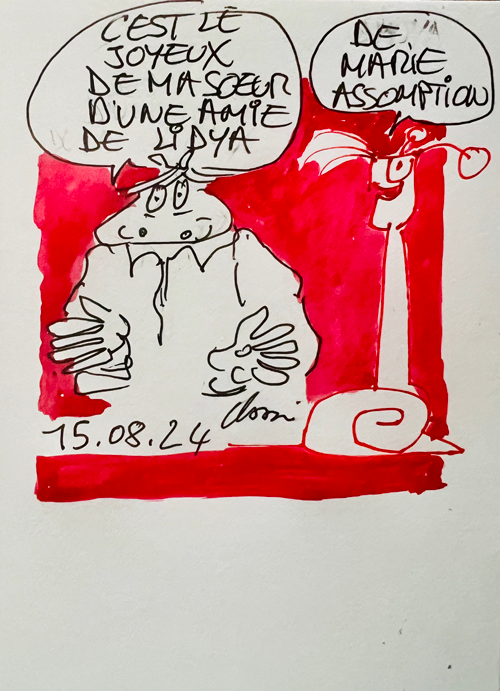 C'EST LE
JOYEUX
DE MA SOEUR
D'UNE AMIE
DE LIDYA
DE
MARIE
ASSOMPTION
15.08.24